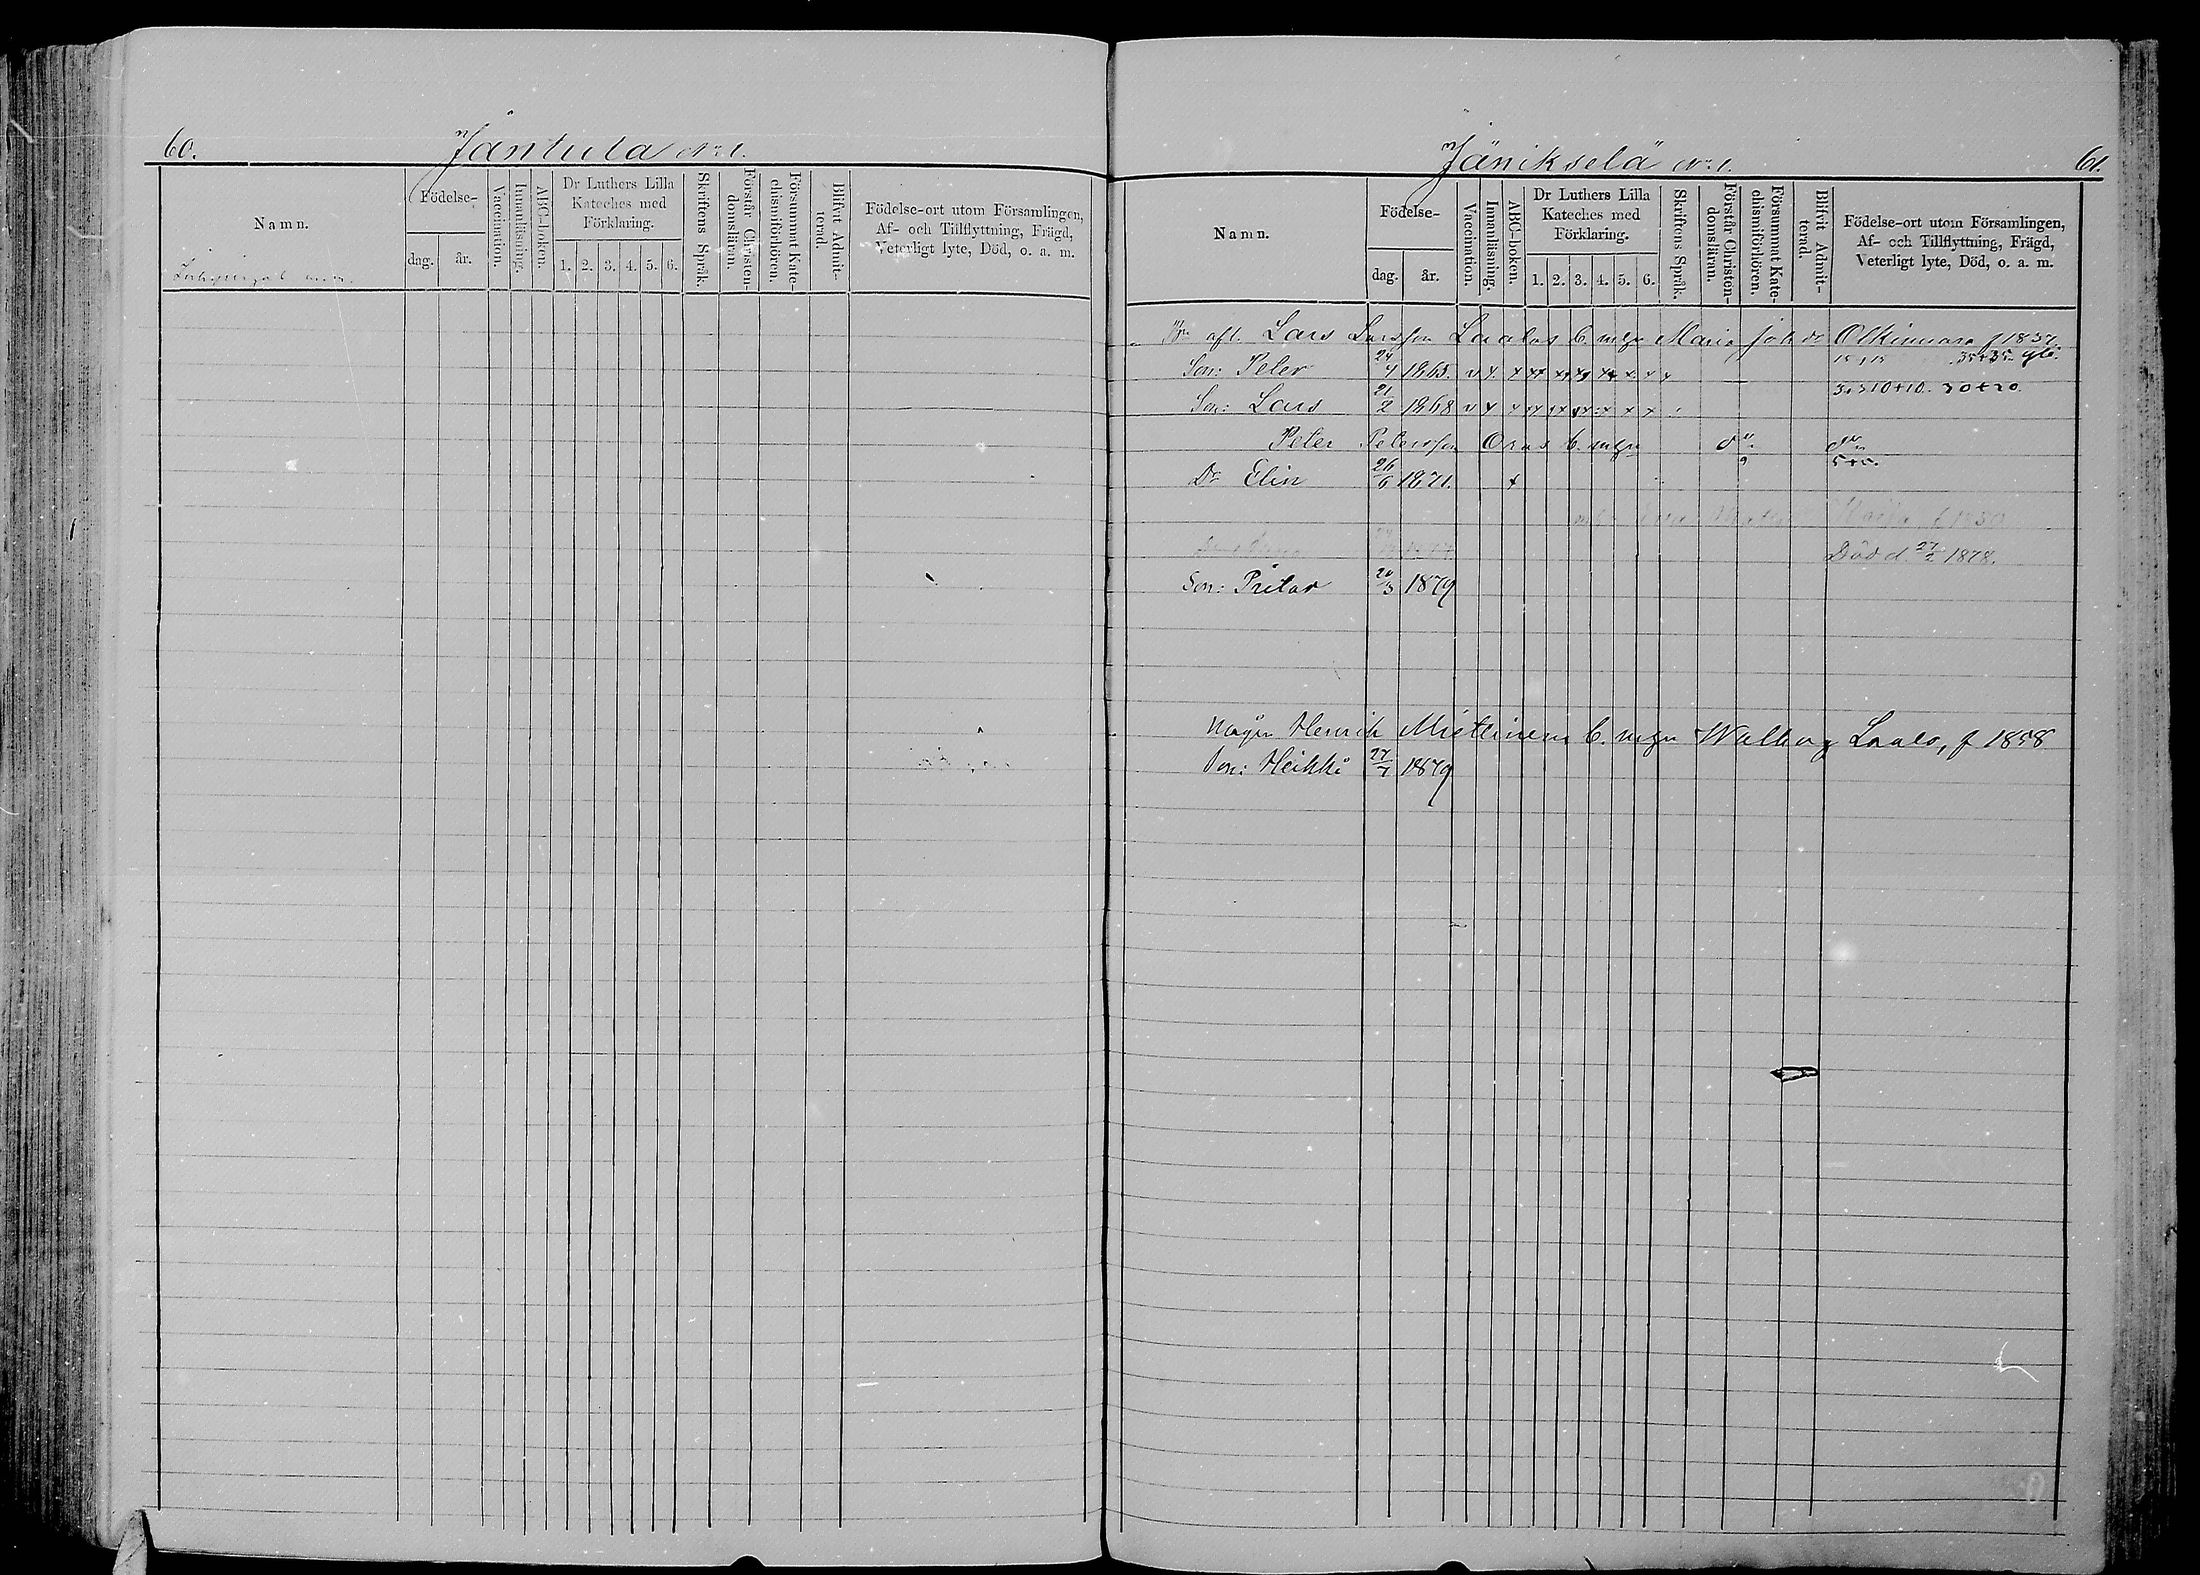 60.
Jäntula No 1.
Namn.
Födelse-
dag.
år.
Vaccination.
Innanläsning.
ABC-boken.
Dr Luthers Lilla
Kateches med
Förklaring.
1. 2. 3. 4. 5. 6.
Skriftens Språk.
Förstår Christen-
domsläran.
Försummat Kate-
chismiförhören.
Blifvit Admit-
terad.
Födelse-ort utom Församlingen,
Af- och Tillflyttning, Frägd,
Veterligt lyte, Död, o. a. m.
Jäniksela No 1.
61.
Namn.
Födelse-
dag.
år.
Vaccination.
Innanläsning.
ABC-boken.
Dr Luthers Lilla
Kateches med
Förklaring.
1. 2. 3. 4. 5. 6.
Skriftens Språk.
Förstår Christen-
domsläran.
Försummat Kate-
chismiförhören.
Blifvit Admit-
terad.
Födelse-ort utom Församlingen,
Af- och Tillflyttning, Frägd,
Veterligt lyte, Död, o. a. m.
afl. Lars Larsson Laalos C. mgn Maria Joh. dr Olkinuora f 1837.
Son: Peter 24/4 1865.
Son: Lars 21/2 1868
Peter Petersson Oras C. mgn
Dr Elin 26/6 1871.
f. 1850
Död d. 27/2 1878.
Son: Pietar 20/3 1879
Mågen Henrik Miettinens C. mgn Walborg Laalo, f 1858
Son: Heikki 27/7 1879